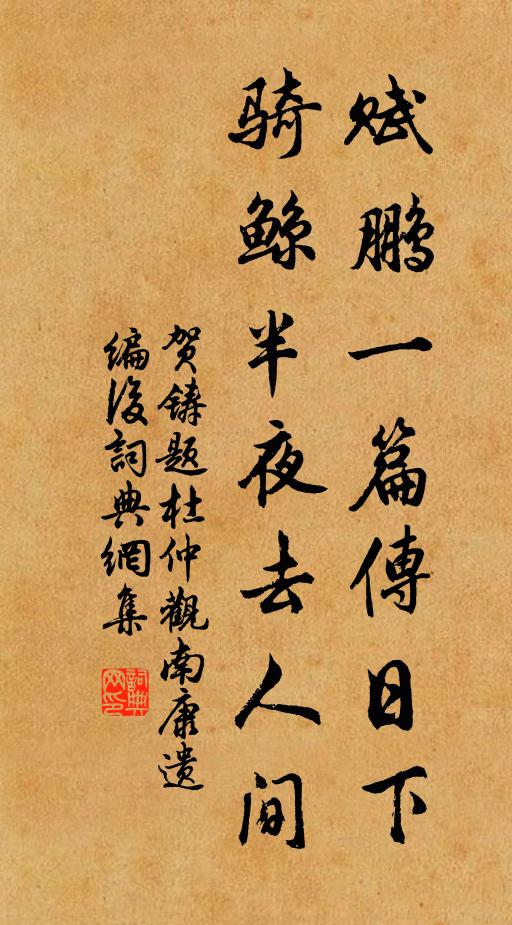 赋鹏一篇傳日下
骑鲸半夜去人间
贺铸题杜仲觀南康遗
编后詞典網集
詞典网印